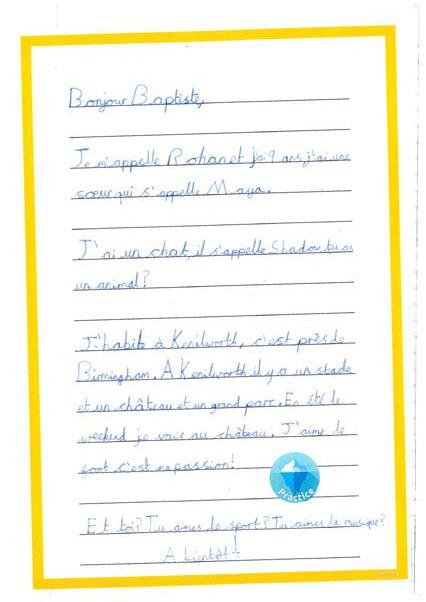 Bonjour Baptiste,
Je m'appelle Rohan et j'ai 9 ans, j'ai une
sœur qui s'appelle Maya.
J'ai un chat, il s'appelle Shadow, tu as
un animal?
J'habite à Kenilworth, c'est près de
Birmingham. A Kenilworth il y a un stade
et un château et un grand parc. En été le
weekend je vais au château. J'aime le
foot c'est ma passion!
Practice
Et toi? Tu aimes le sport? Tu aimes la musique?
A bientôt!